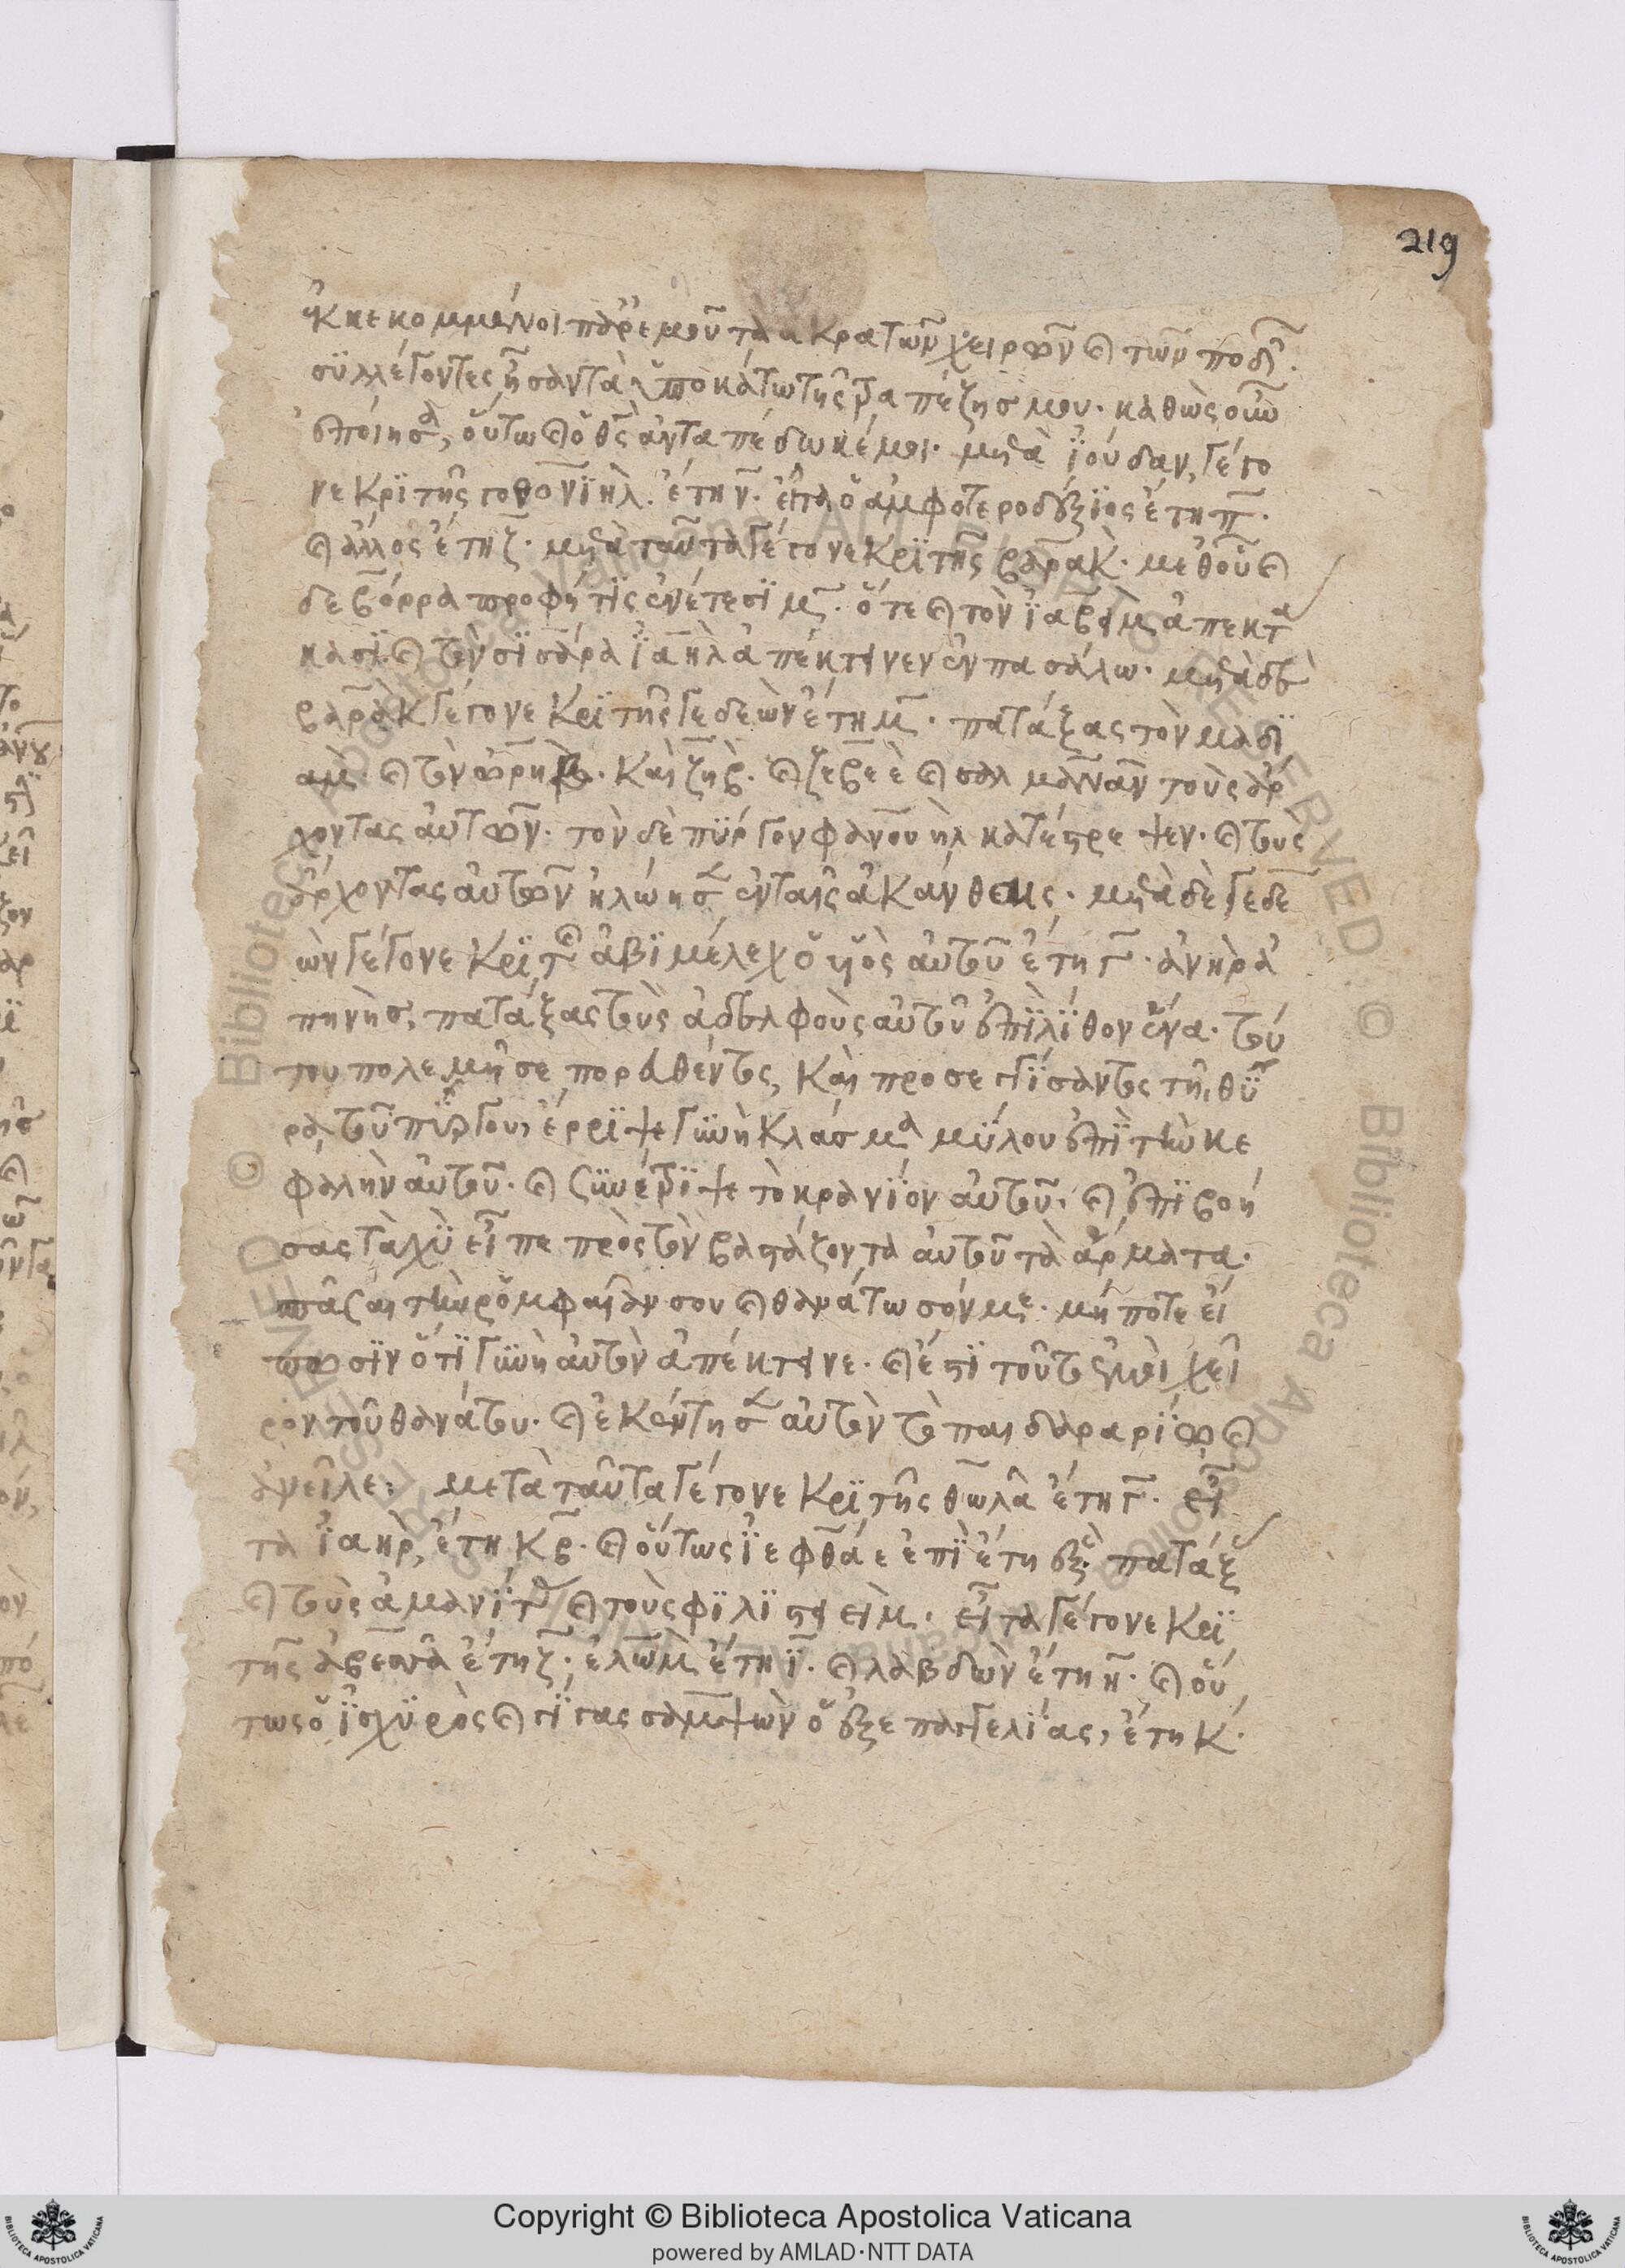 219
ἐκκεκομμένοι παρ' ἐμοῦ τὰ ἄκρα τῶν χειρῶν καὶ τῶν ποδῶν.
συλλέγοντες ἦσαν τὰ ὑποκάτω τῆς τραπέζης μου. καθὼς οὖν
ἐποίησα, οὕτω καὶ ὁ θς ἀνταπέδωκέ μοι. μετὰ ἰούδαν, γέγο
νε κριτὴς γοθονιὴλ ἔτη ν. εἶτα ὁ ἀμφοτεροδέξιος ἔτη π.
καὶ ἄλλος ἔτη ζ. μετὰ ταῦτα γέγονε κριτὴς βαρὰκ. μεθ' οὗ καὶ
δεβόρρα προφῆτις ἐν ἔτεσι μ. ὅτε καὶ τὸν ἰαβεὶμ ἀπεκτά
κασι. καὶ τὸν σισάρα ἰαὴλ ἀπέκτεινεν ἐν πασάλω. μετὰ δὲ
βαρὰκ γέγονε κριτὴς γεδεὼν ἔτη μ. πατάξας τὸν μαδι
ὰμ. καὶ τὸν ὠρὴβ. καὶ ζὴβ. καὶ ζεβεὲ καὶ σαλμανὰν τοὺς ἄρ
χοντας αὐτῶν. τὸν δὲ πύργον φανουὴλ κατέστρεψεν. καὶ τοὺς
ἄρχοντας αὐτῶν ἠλώησεν ἐν ταῖς ἀκάνθαις. μετὰ δὲ γεδε
ὼν γέγονε κριτὴς ἀβιμέλεχ ὁ υἱὸς αὐτοῦ ἔτη γ. ἀνὴρ ἀ
πηνὴς, πατάξας τοὺς ἀδελφοὺς αὐτοῦ ἐπὶ λίθον ἕνα. τού
του πολεμῆσε πορευθέντος, καὶ προσεγγίσαντος τῇ θύ
ρᾳ τοῦ πύργου, ἔρριψε γυνὴ κλάσμα μύλου ἐπὶ τὴν κε
φαλὴν αὐτοῦ. καὶ συνέτριψε τὸ κρανίον αὐτοῦ. καὶ ἐπιβοή
σας ταχὺ εἶπε πρὸς τὸν βαστάζοντα αὐτοῦ τὰ ἅρματα.
σπᾶσαι τὴν ῥομφαίαν σου καὶ θανάτωσόν με. μήποτε εἴ
πωσιν ὅτι γυνὴ αὐτὸν ἀπέκτεινε. καὶ ἔστι τοῦτό μοι χεῖ
ρον τοῦ θανάτου. καὶ ἐκέντησεν αὐτὸν τὸ παιδαράριον καὶ
ἀνεῖλε: μετὰ ταῦτα γέγονε κριτὴς θωλᾶ ἔτη γ. εἶ
τα ἰαὴρ, ἔτη κβ. καὶ οὕτως ἰεφθάε ἐπὶ ἔτη ἓξ πατάξας
καὶ τοὺς ἀμανίτας καὶ τοὺς φιλιστιεὶμ. εἶτα γέγονε κρι
τὴς ἀβεσσὰ ἔτη ζ. ἐλὼμ ἔτη ι. καὶ λαβδὼν ἔτη η. καὶ οὕ
τως ὁ ἰσχυρὸς καὶ γίγας σαμψὼν ὁ ἐξ ἐπαγγελίας, ἔτη κ.
Copyright © Biblioteca Apostolica Vaticana
powered by AMLAD·NTT DATA